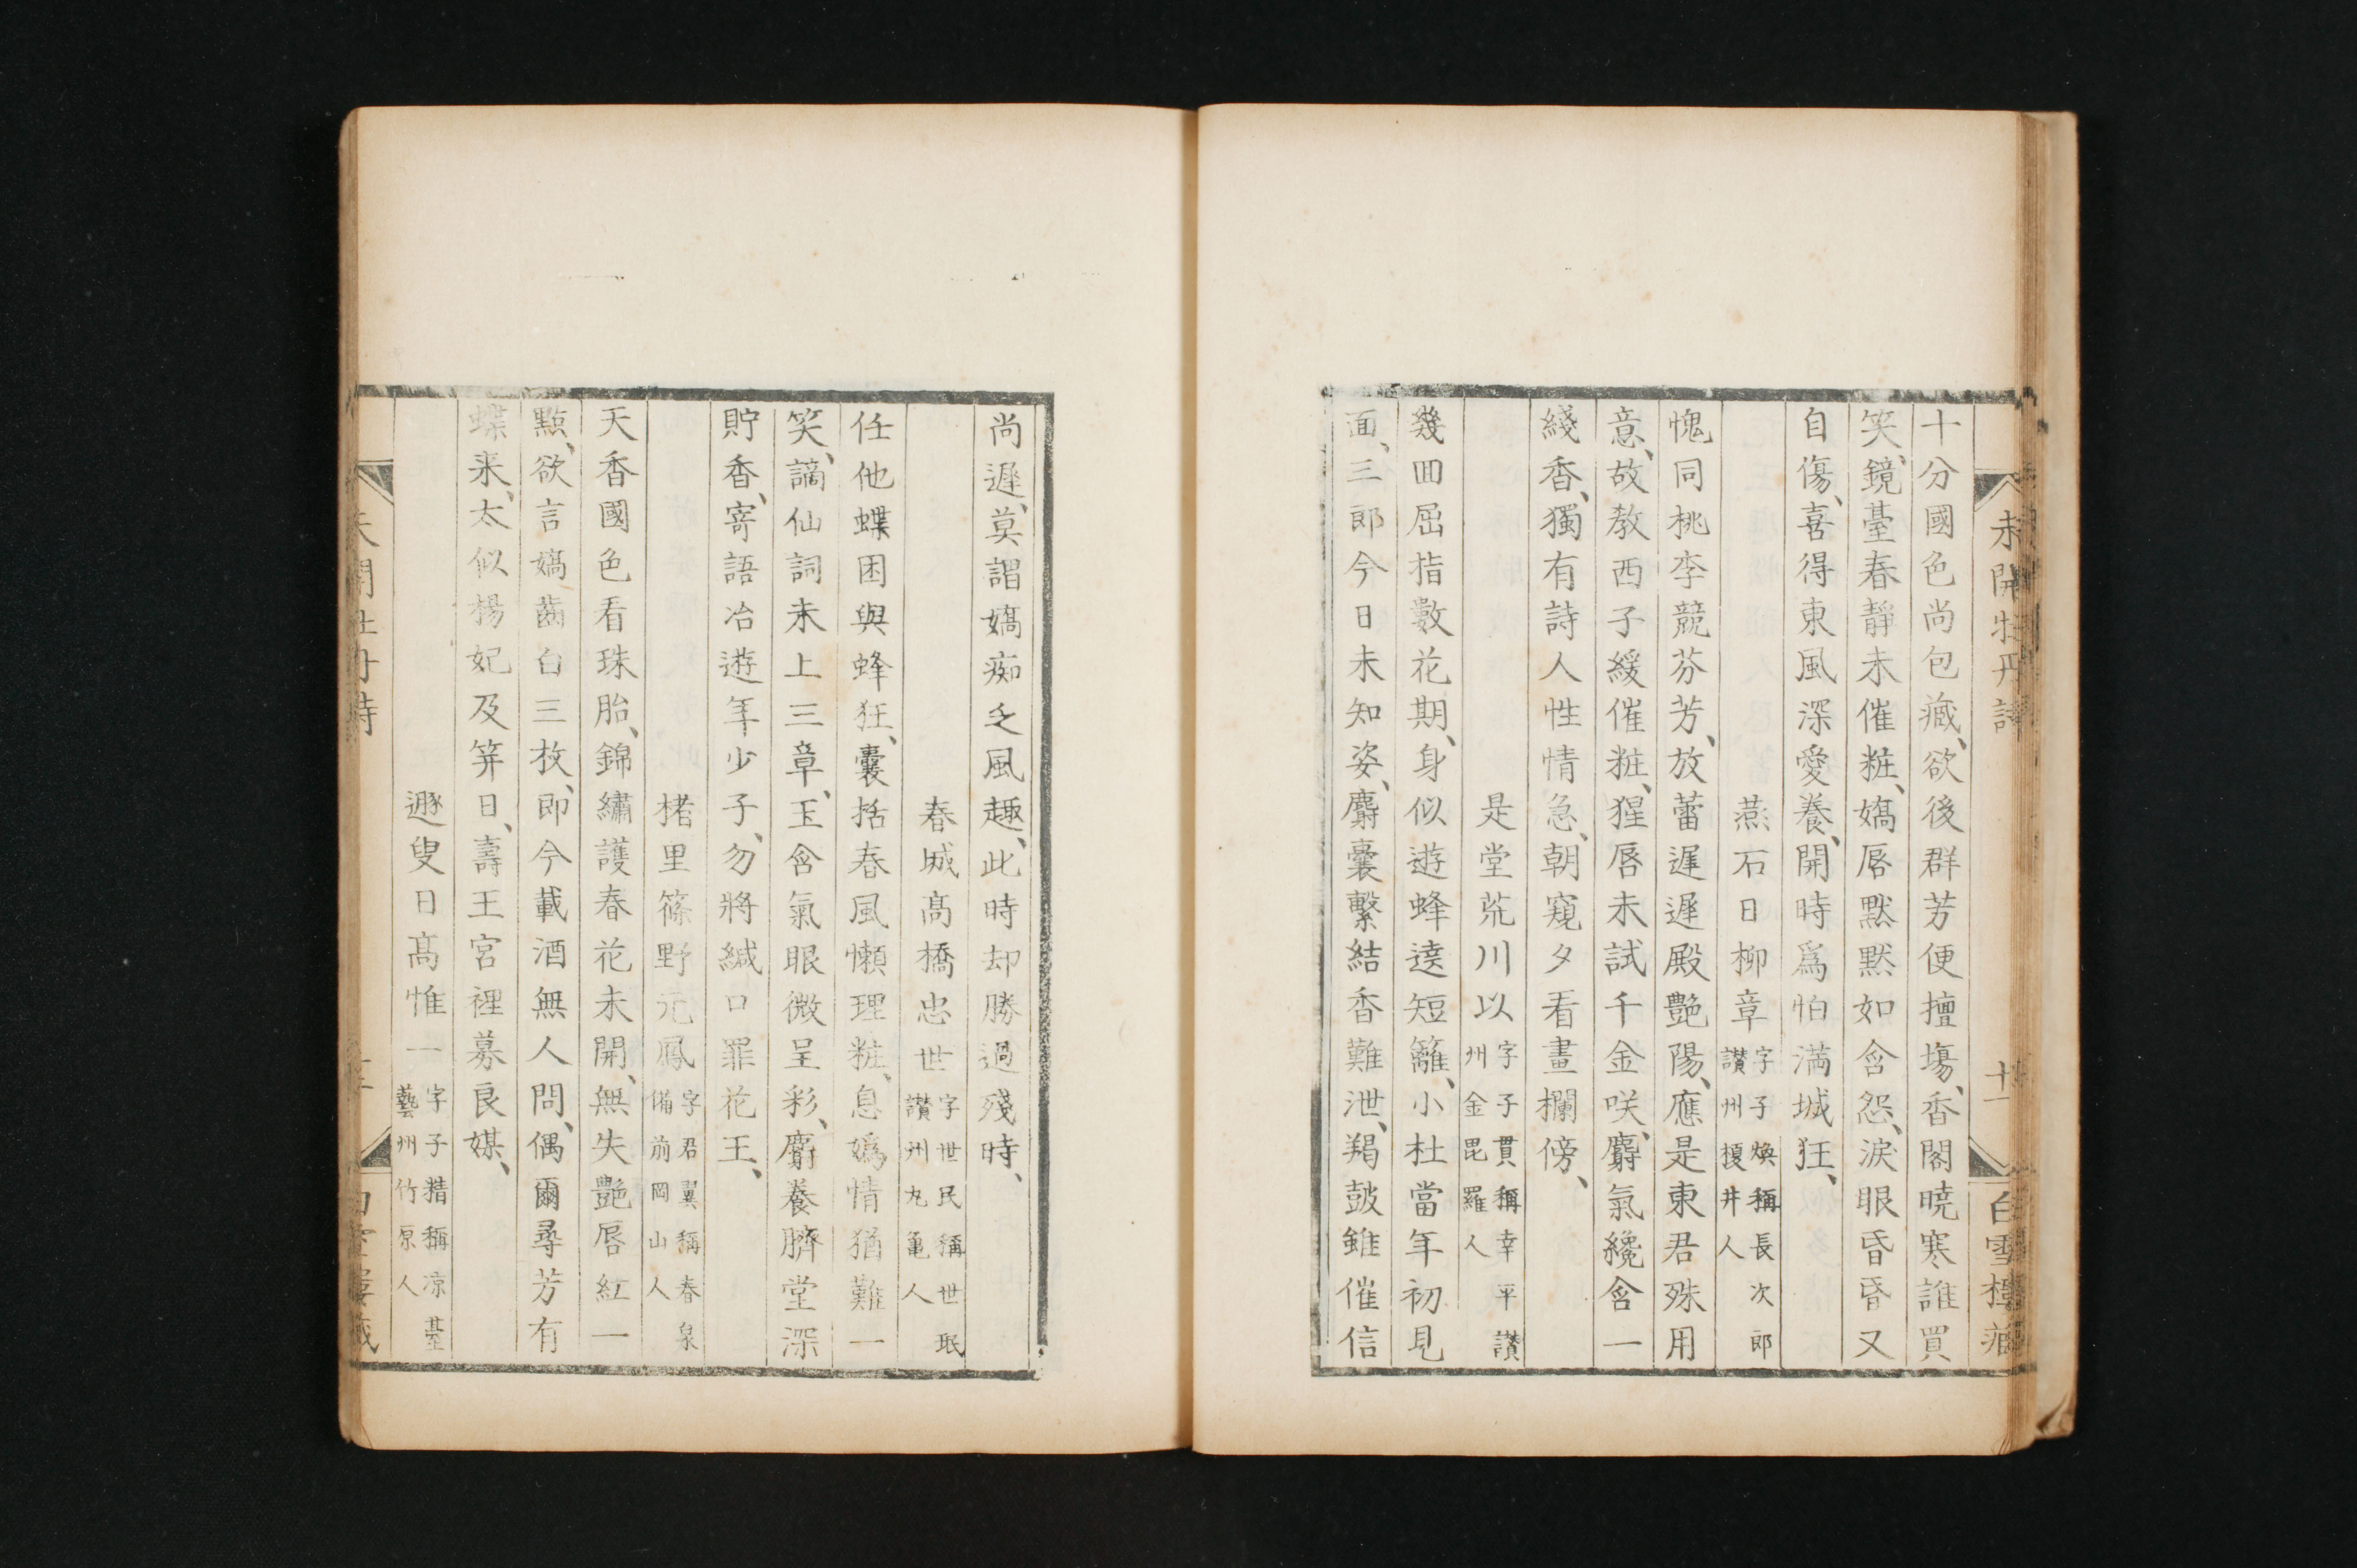 未開牡丹詩 十一 白雪樓藏
十分國色尚包藏、欲後群芳便擅場、香閣曉寒誰買
笑、鏡臺春靜未催粧、嬌唇默默如含怨、淚眼昏昏又
自傷、喜得東風深愛養、開時爲怕満城狂、
燕石日柳章 字子煥稱長次郎讃州榎井人
愧同桃李競芬芳、放蕾遲遲殿艶陽、應是東君殊用
意、故教西子緩催粧、猩唇未試千金咲、麝氣纔含一
綫香、獨有詩人性情急、朝窺夕看畫欄傍、
是堂荒川以 字子貫稱幸平讃州金毘羅人
幾回屈指數花期、身似遊蜂遶短籬、小杜當年初見
面、三郎今日未知姿、麝囊繫結香難泄、羯鼓雖催信
尚遲、莫謂嬌痴乏風趣、此時却勝過殘時、
春城髙橋忠世 字世民稱世珉讃州丸亀人
任他蝶困與蜂狂、囊括春風懶理粧、息嬀情猶難一
笑、謫仙詞未上三章、玉含氣眼微呈彩、麝養臍堂深
貯香、寄語冶遊年少子、勿將緘口罪花王、
楮里篠野元鳳 字君翼稱春泉備前岡山人
天香國色看珠胎、錦繡護春花未開、無失艶唇紅一
點、欲言嬌齒白三枚、即今載酒無人問、偶爾尋芳有
蝶来、太似楊妃及笄日、壽王宮裡募良媒、
遯叟日髙惟一 字子精稱凉臺藝州竹原人